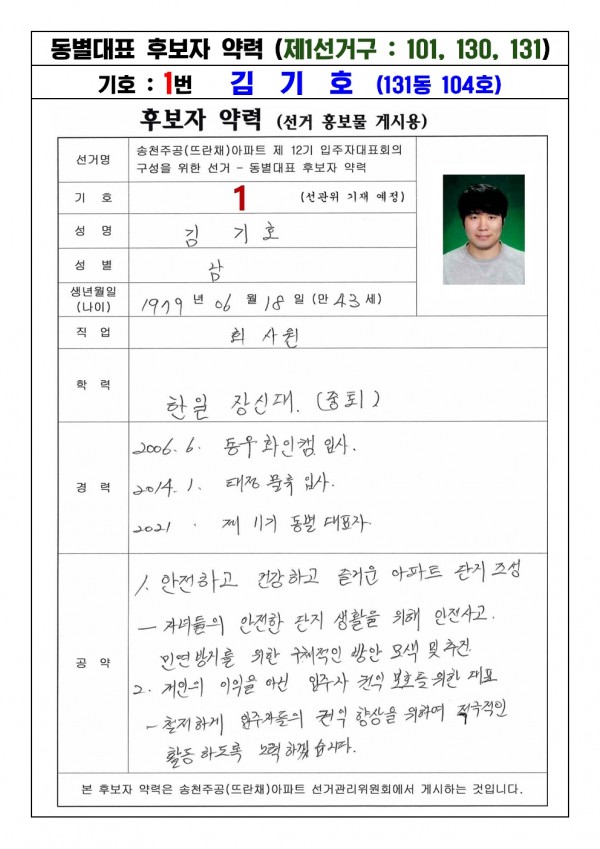 동별대표 후보자 약력 (제1선거구 : 101, 130, 131)
기호 : 1번 김 기 호 (131동 104호)
후보자 약력 (선거 홍보물 게시용)
선거명
송천주공(뜨란채)아파트 제 12기 입주자대표회의
구성을 위한 선거 - 동별대표 후보자 약력
기 호
1 (선관위 기재 예정)
성 명
김 기호
성 별
남
생년월일
(나이)
1979 년 06 월 18 일 (만 43 세)
직 업
회 사원
학 력
한일 장신대. (중퇴)
경 력
2006. 6. 동우 화인켐 입사.
2014. 1. 태정 물류 입사.
2021 . 제 11기 동별 대표자.
공 약
1. 안전하고 건강하고 즐거운 아파트 단지 조성
- 자녀들의 안전한 단지 생활을 위해 안전사고.
미연방지를 위한 구체적인 방안 모색 및 추진.
2. 개인의 이익을 아닌 입주자 권익 보호를 위한 대표
- 철저하게 입주자들의 권익 향상을 위하여 적극적인
활동 하도록 노력 하겠습니다.
본 후보자 약력은 송천주공(뜨란채)아파트 선거관리위원회에서 게시하는 것입니다.